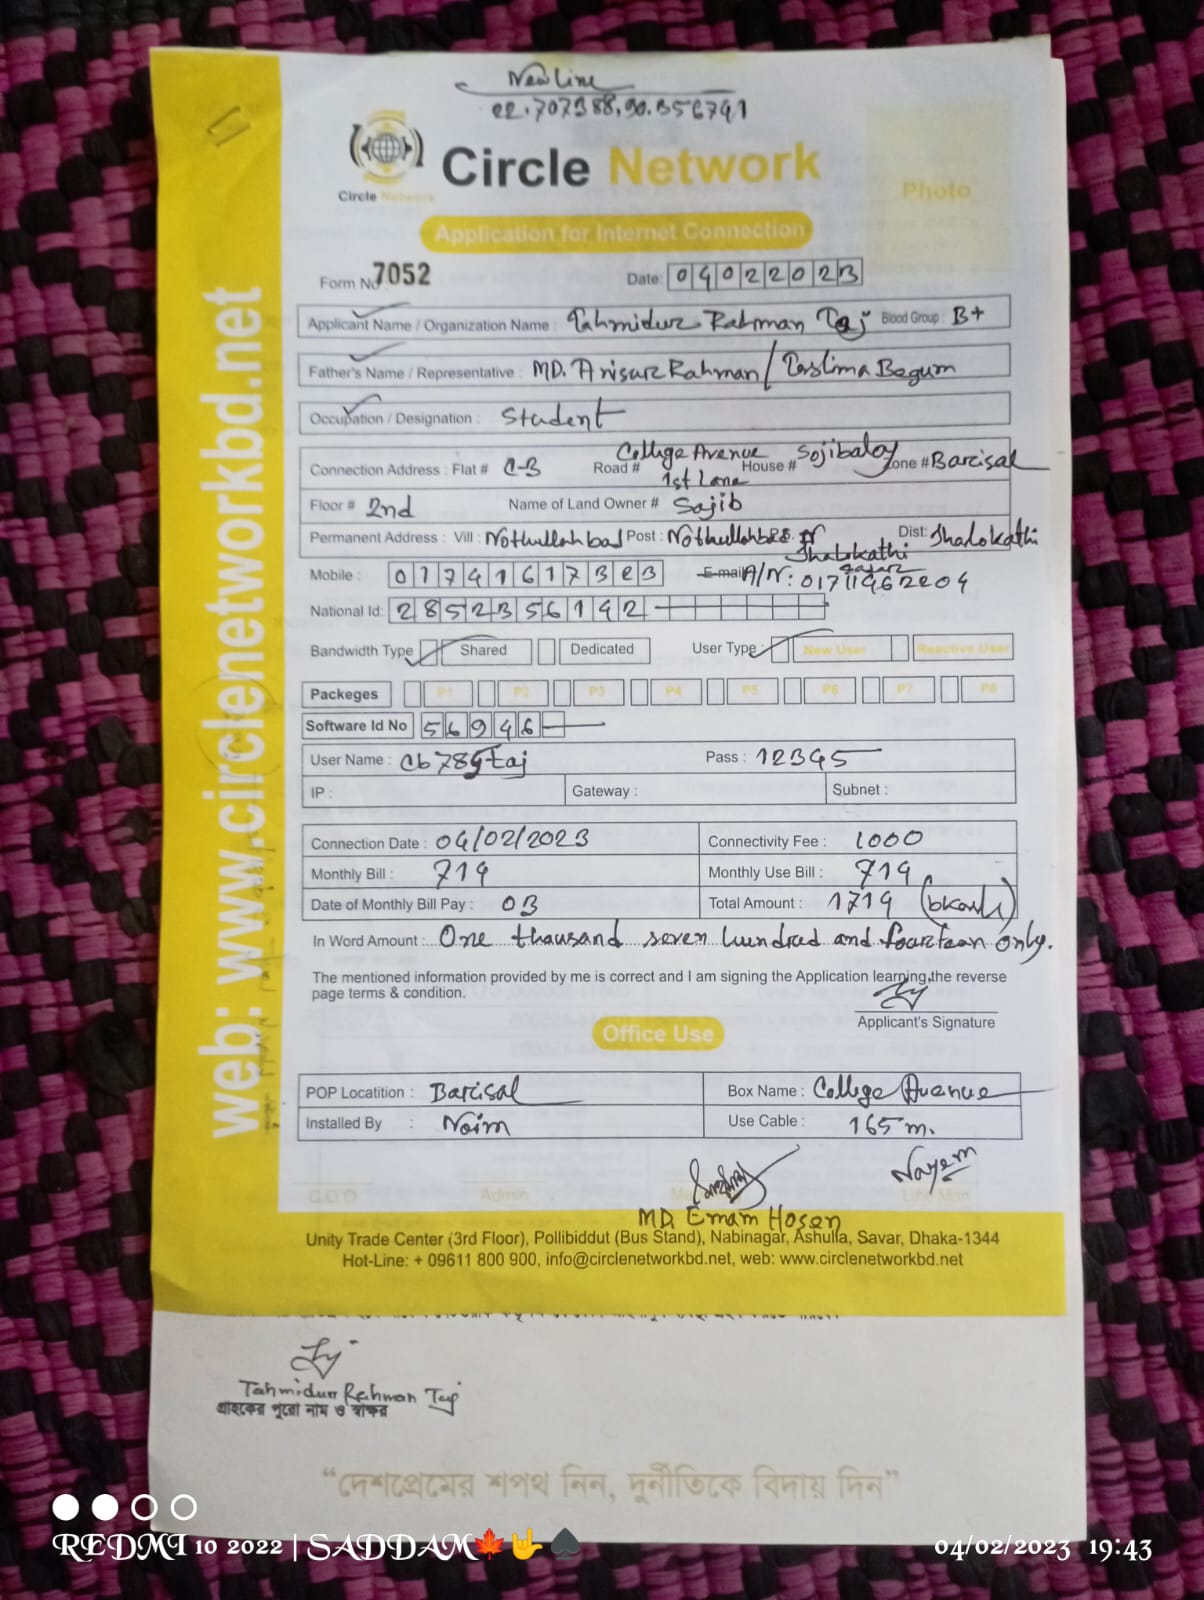 New Line
22.707388,90.356791
Circle Network
Circle Network
Photo
Application for Internet Connection
Form No 7052 Date: 04022023
Applicant Name / Organization Name : Tahmidur Rahman Taj Blood Group : B+
Father's Name / Representative : MD. Anisur Rahman / Taslima Begum
Occupation / Designation : Student
Connection Address : Flat # C-3 Road # College Avenue 1st Lane House # Sojibaloy Zone # Barisal
Floor # 2nd Name of Land Owner # Sajib
Permanent Address : Vill : Nothullahbad Post : Dist: Jhalokathi
Jhalokathi
Mobile : 01741617323 E-mail A/N: 01711962204
National Id: 2852356192
Bandwidth Type Shared Dedicated User Type: New User Reactive User
Packeges P1 P2 P3 P4 P5 P6 P7 P8
Software Id No 56946
User Name : cb789taj Pass : 12345
IP : Gateway : Subnet :
Connection Date : 04/02/2023 Connectivity Fee : 1000
Monthly Bill : 714 Monthly Use Bill : 714
Date of Monthly Bill Pay : 03 Total Amount : 1714 (bkash)
In Word Amount : One thousand seven hundred and fourteen only.
The mentioned information provided by me is correct and I am signing the Application learning the reverse
page terms & condition.
Applicant's Signature
Office Use
POP Locatition : Barisal Box Name : College Avenue
Installed By : Noim Use Cable : 165 m.
Nayem
C.O.O Admin Line Man
MD. Emam Hosen
Unity Trade Center (3rd Floor), Pollibiddut (Bus Stand), Nabinagar, Ashulia, Savar, Dhaka-1344
Hot-Line: + 09611 800 900, info@circlenetworkbd.net, web: www.circlenetworkbd.net
web: www.circlenetworkbd.net
Tahmidur Rahman Taj
গ্রাহকের পুরো নাম ও স্বাক্ষর
“দেশপ্রেমের শপথ নিন, দুর্নীতিকে বিদায় দিন”
REDMI 10 2022 | SADDAM🍁🤟♠ 04/02/2023 19:43